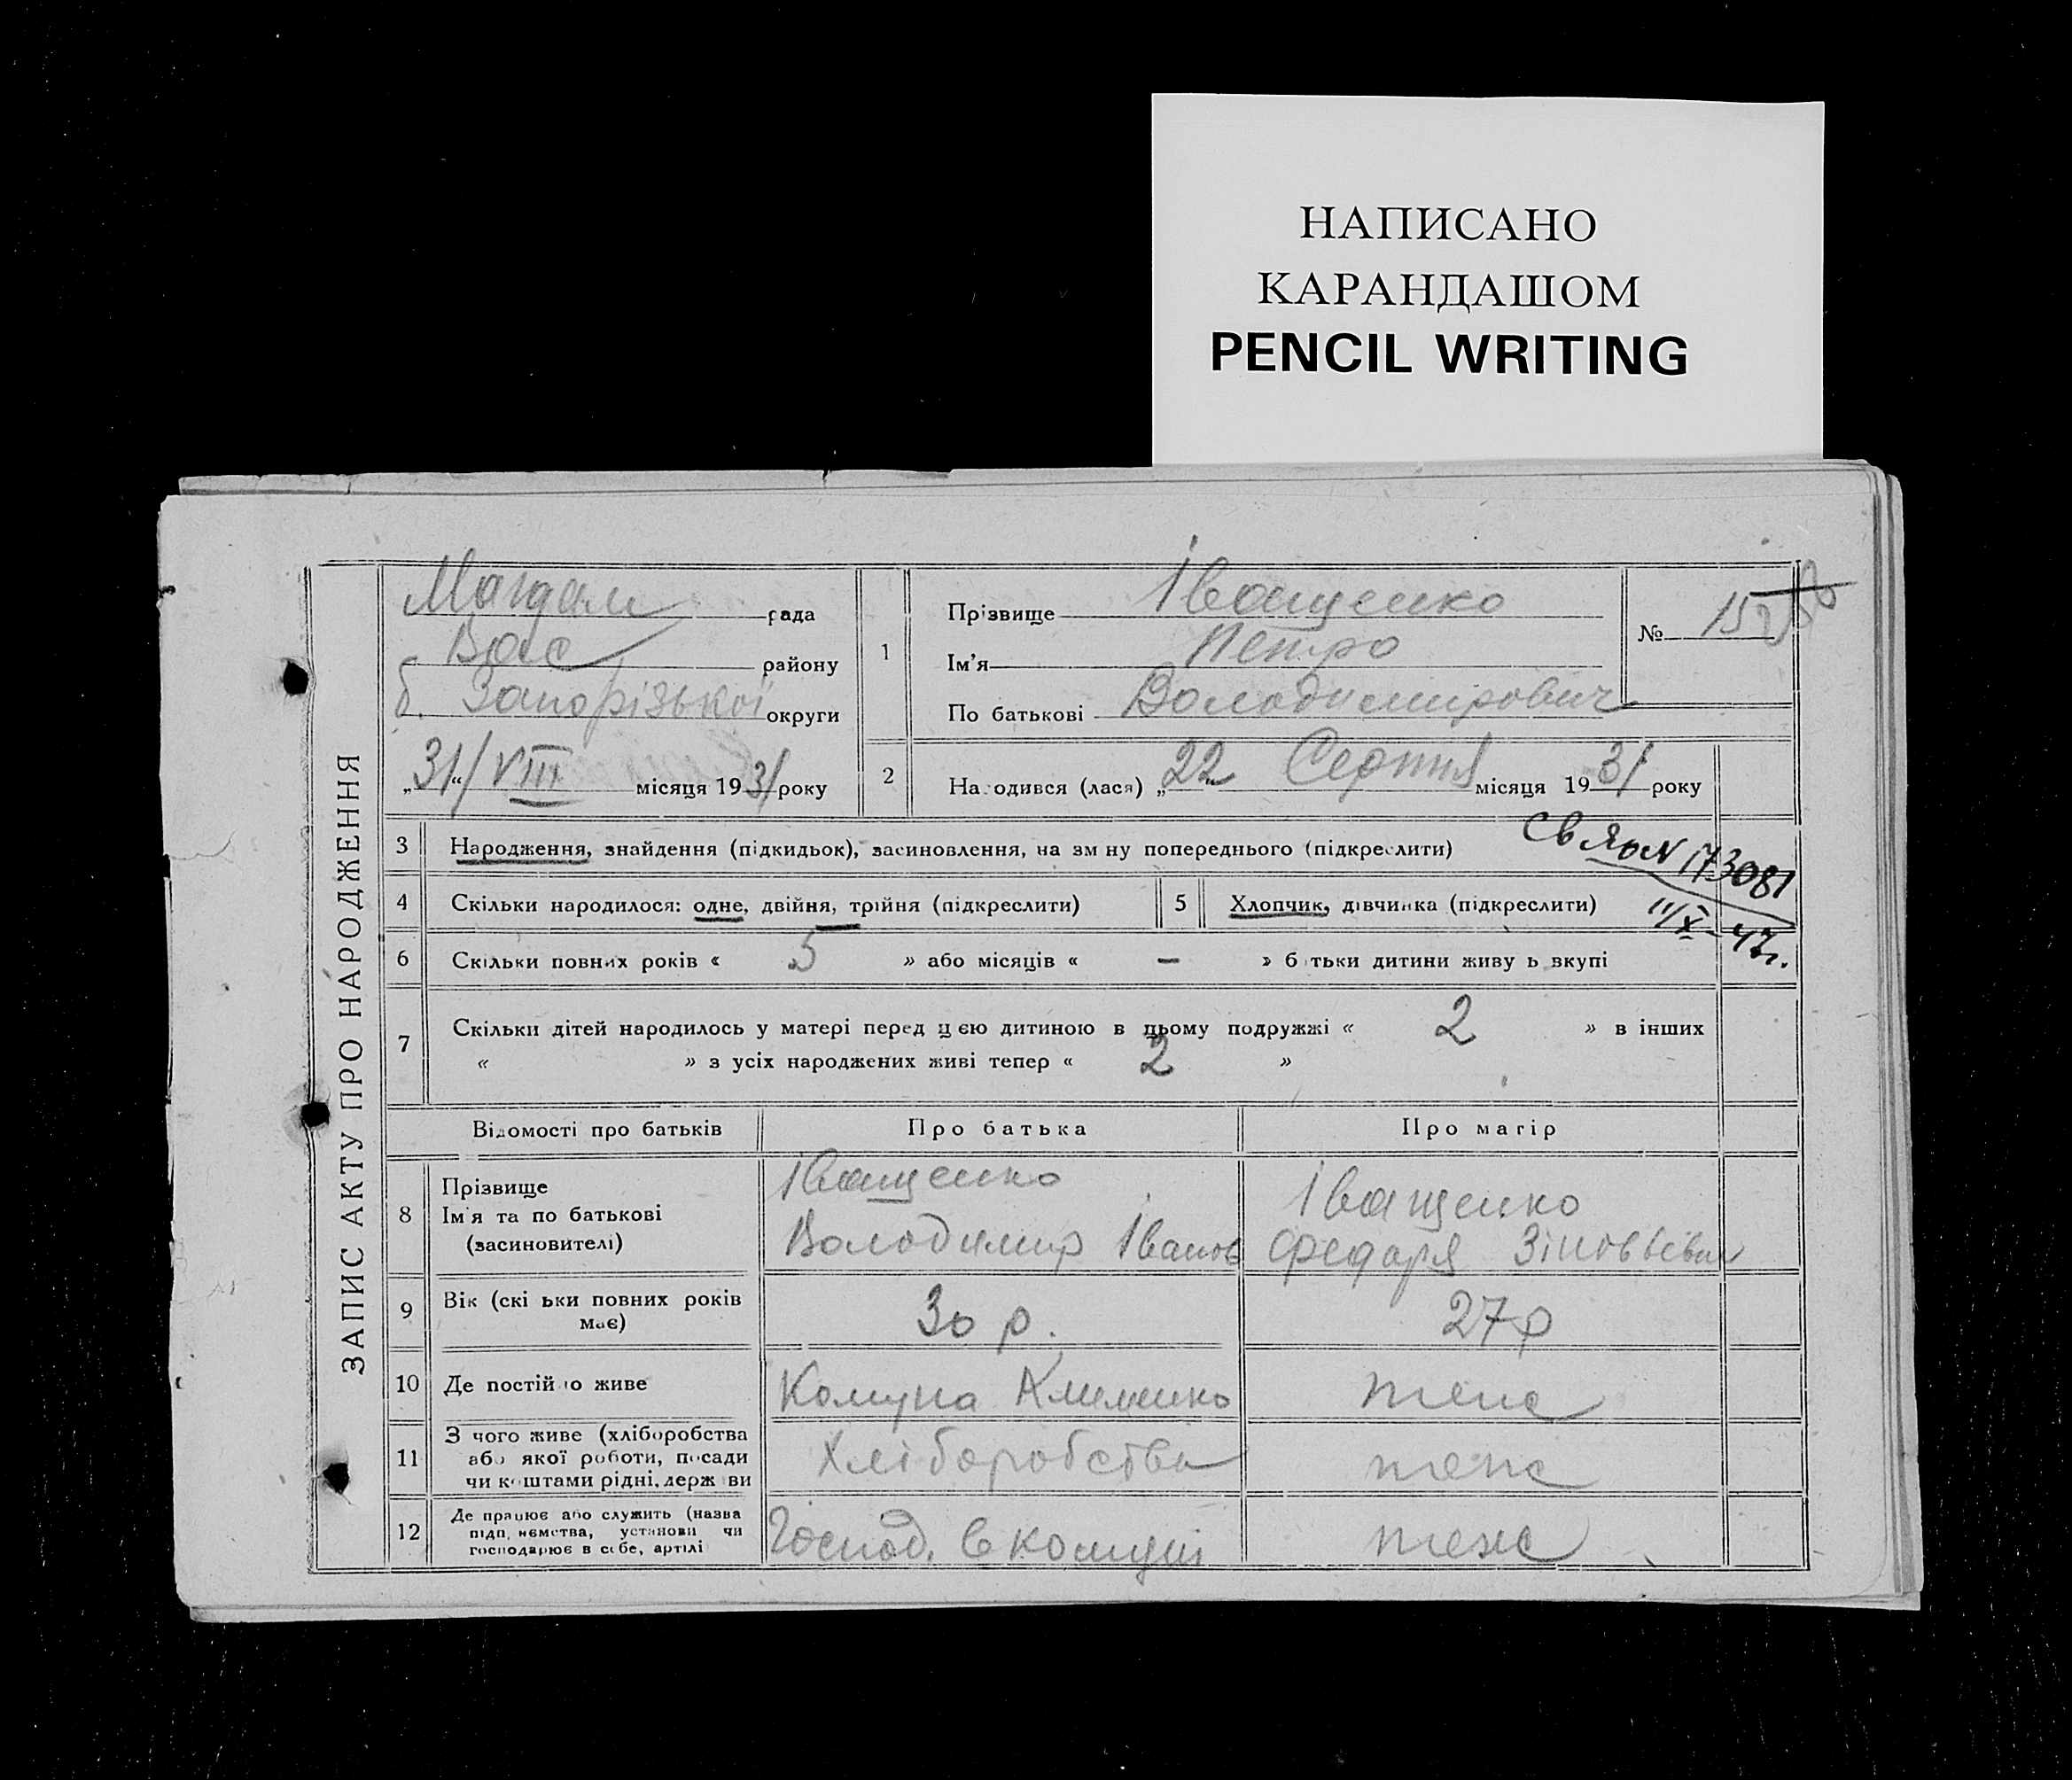 НАПИСАНО
КАРАНДАШОМ
PENCIL WRITING
ЗАПИС АКТУ ПРО НАРОДЖЕННЯ
рада
Вас району
б. Запорізької округи
„31“/VIII місяця 1931 року
1
Прізвище Іващенко
Ім'я Петро
По батькові Володимирович
№ 15
2
На одився (лася) „22 Серпня місяця 1931 року
3 Народження, знайдення (підкидьок), засиновлення, на зм ну попереднього (підкреслити)
№ 173081
11/X-47г.
4 Скільки народилося: одне, двійня, трійня (підкреслити) 5 Хлопчик, дівчинка (підкреслити)
6 Скільки повних років « 5 » або місяців « — » б тьки дитини живу ь вкупі
7 Скільки дітей народилось у матері перед цєю дитиною в цьому подружжі « 2 » в інших
« » з усіх народжених живі тепер « 2 »
Відомості про батьків Про батька Про матір
8 Прізвище
Ім'я та по батькові
(засиновителі)
Іващенко
Володимир Іванов
Іващенко
Федаря Зіновьівна
9 Вік (скі ьки повних років
має)
30 р. 27 р
10 Де постійно живе Комуна Клименко теже
11 З чого живе (хліборобства
або якої роботи, посади
чи коштами рідні, держ ви
Хліборобства теже
12 Де працює або служить (назва
підп. ємства, установи чи
господарює в себе, артілі
Господ. в комуні теже